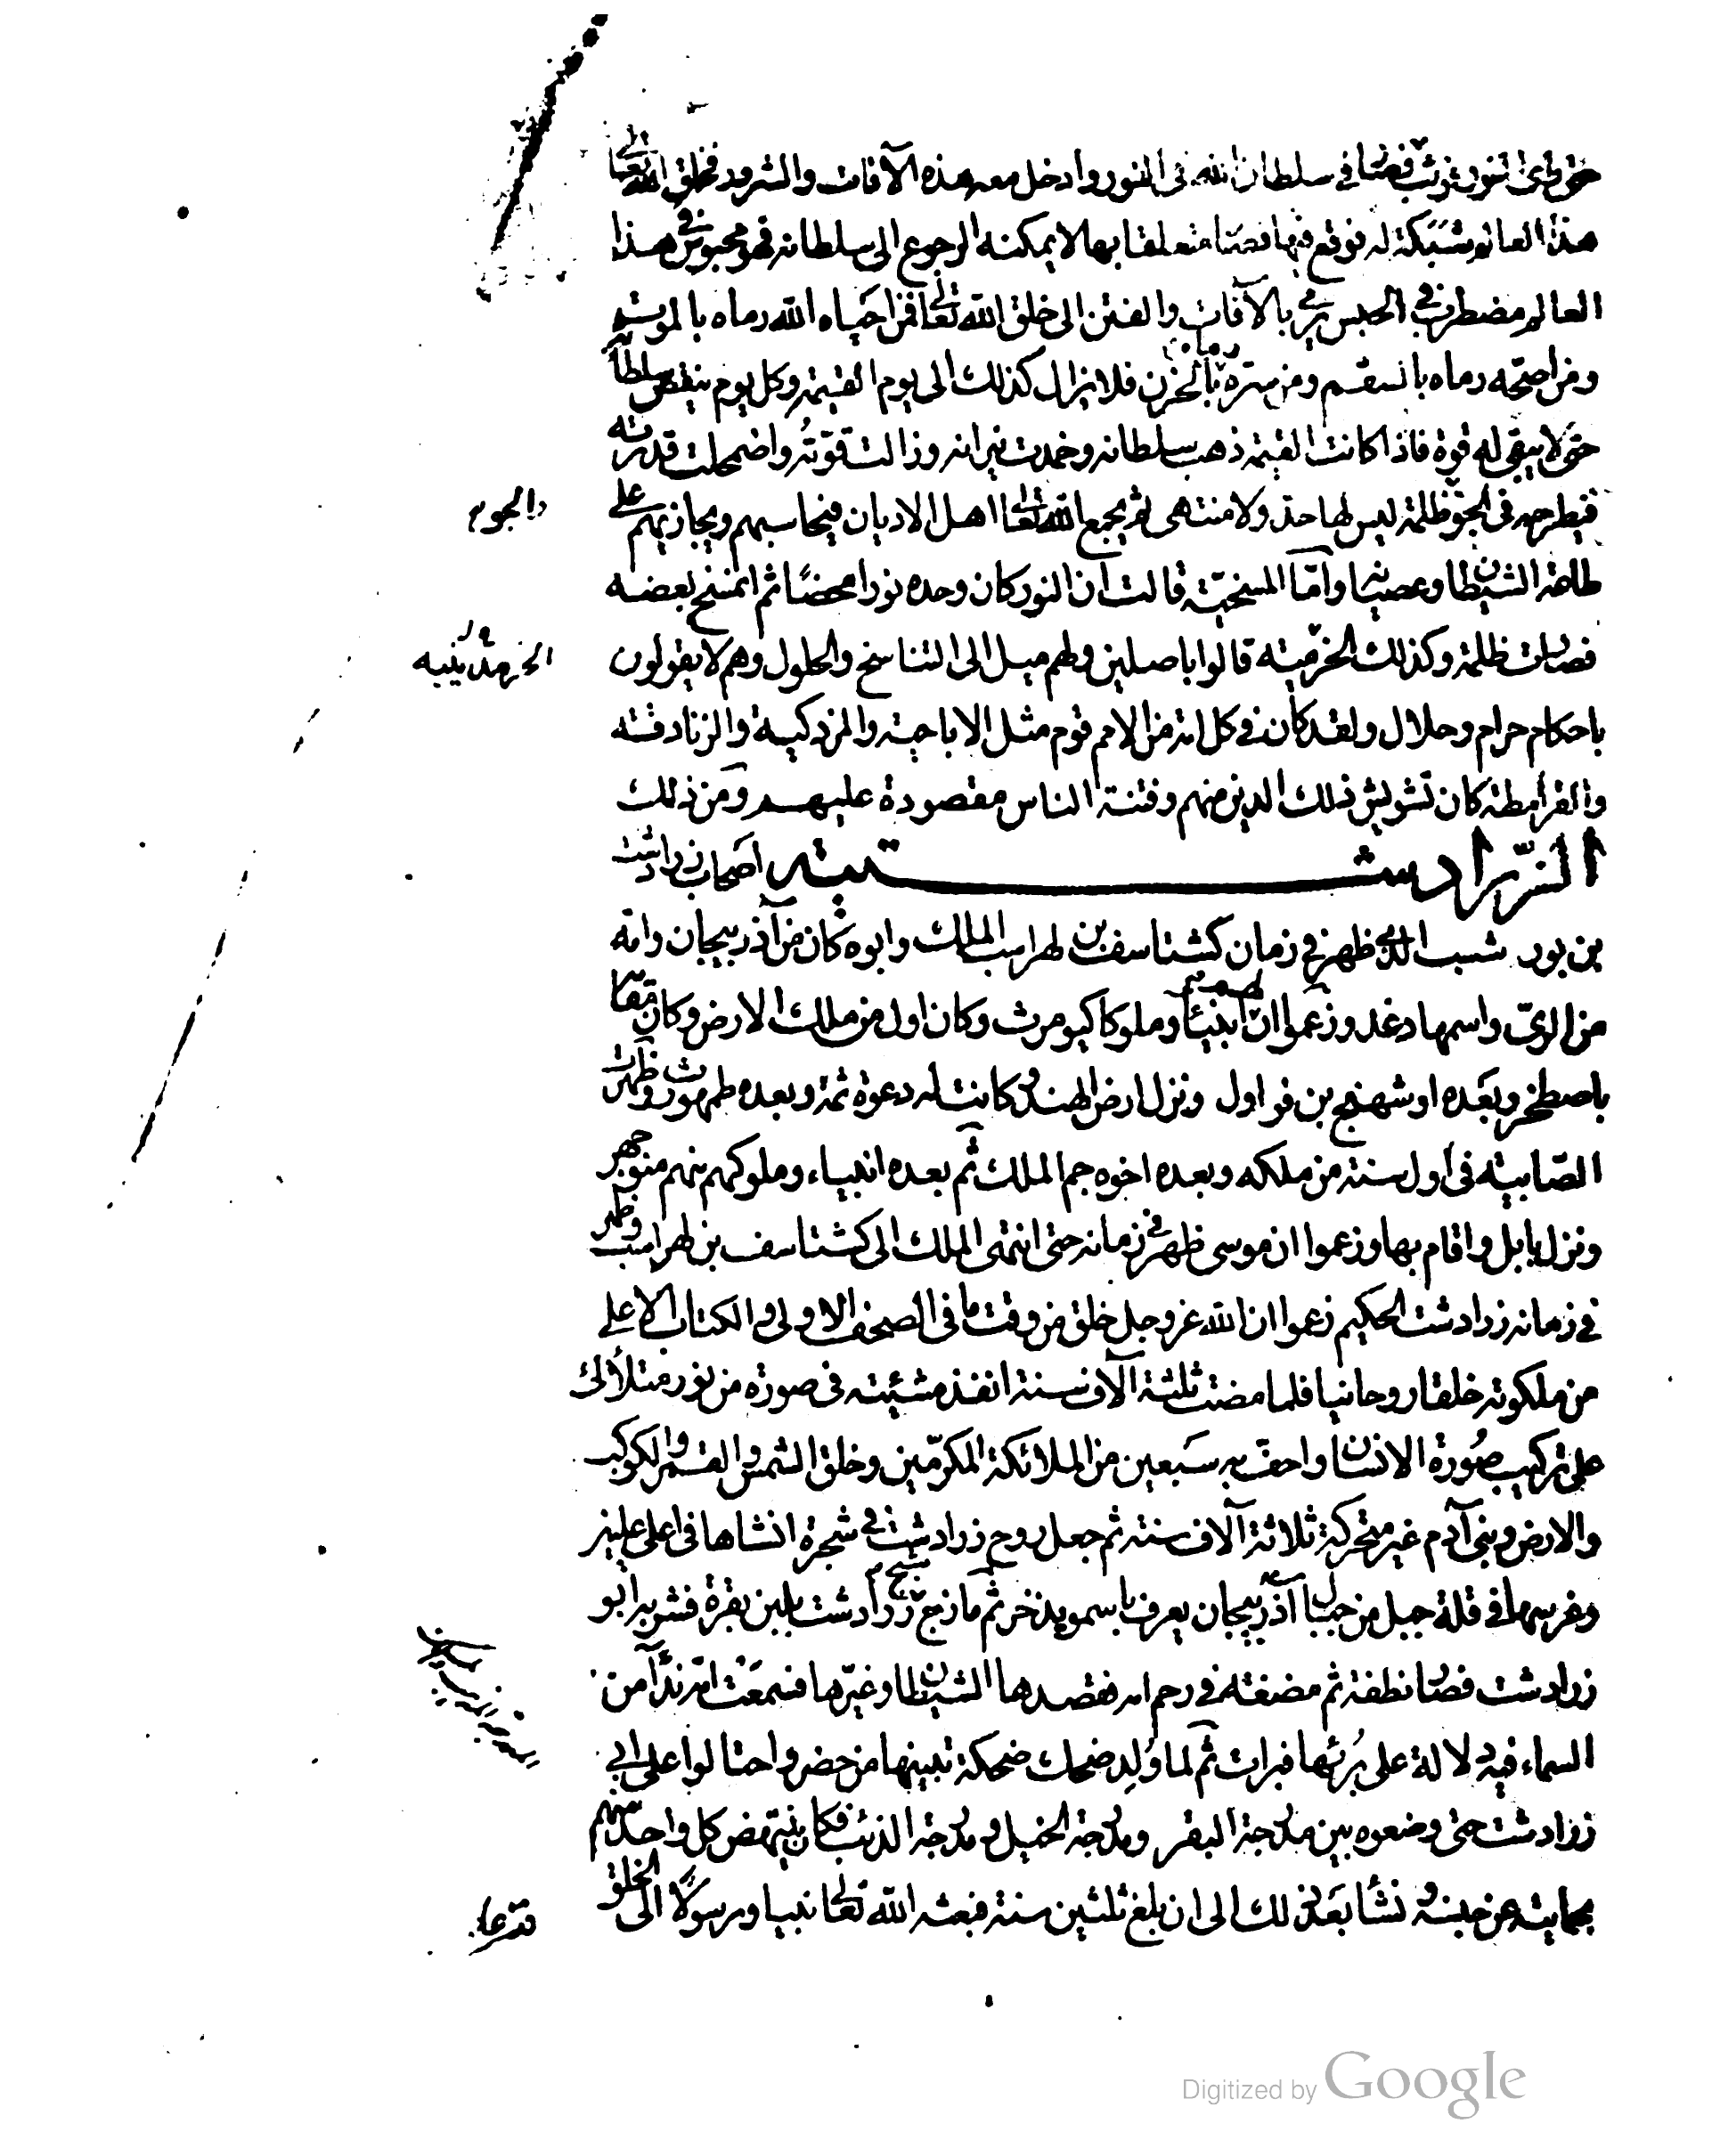 حتى راى النور فوثب فصار في سلطان الله في النور وادخل معه هذه الآفات والشرور فخلق الله تعالى
هذا العالم شبكة له فوقع فيها فصار متعلقا بها لا يمكنه الرجوع الى سلطانه فهو محبوس في هذا
العالم مضطرب في الحبس يرمي بالآفات والفتن الى خلق الله تعالى فمن احياه الله رماه بالموت
ومن اصحّه رماه بالسقم ومن سرّه رماه بالحزن فلا يزال كذلك الى يوم القيمة وكل يوم ينقص سلطانه
حتى لا يبقى له قوة فاذا كانت القيمة ذهب سلطانه وخمدت نيرانه وزالت قوّتُه واضمحلت قدرته
فيطرحه في الجوّ ظلمة ليس لها حد ولا منتهى ثم يجمع الله تعالى اهل الاديان فيحاسبهم ويجازيهم على
والجو
طاعة الشيطان وعصيانه وامّا المسخيّة قالت ان النور كان وحده نورا محضًا ثم انمسخ بعضه
فصارت ظلمة وكذلك الخرّميّة قالوا باصلين ولهم ميل الى التناسخ والحلول وهم لا يقولون
الخرمدينيه
باحكام حرام وحلال ولقد كان في كل امة من الامم قوم مثل الاباحية والمزدكية والزنادقة
والقرامطة كان تشويش ذلك الدين منهم وفتنة الناس مقصودة عليهم ومن ذلك
الزّرادشتيه اصحاب زرادشت
بن بورشسب الذي ظهر في زمان كشتاسف بن لهراسب الملك وابوه كان من آذربيجان وامّه
من الريّ واسمها دغد وزعموا ان لهم انبياء وملوكا كيومرث وكان اول من ملك الارض وكان مقامه
باصطخر وبعده اوشهنج بن فراول ونزل ارض الهند وكانت له دعوة ثمة وبعده طمهورث وظهرت
الصّابية في اول سنة من ملكه وبعده اخوه جم الملك ثم بعده انبياء وملوكهم منهم منوجهر
ونزل بابل واقام بها وزعموا ان موسى ظهر في زمانه حتى انتهى الملك الى كشتاسف بن لهراسب وظهر
في زمانه زرادشت الحكيم زعموا ان الله عز وجل خلق من وقت ما في الصحف الاولى والكتاب الاعلى
من ملكوته خلقا روحانيا فلما مضت ثلثة آلاف سنة انفذ مشيئته في صورة من نور متلألئ
على تركيب صُورة الانسان واحفّ به سَبعين من الملائكة المكرّمين وخلق الشمس والقمر والكواكب
والارض وبني آدم غير متحركة ثلاثة آلاف سنة ثم جعل روح زرادشت في شجرة انشاها في اعلى عليين
وغرسها في قلة جبل من جبال آذربيجان يعرف باسمويذخر ثم مازج شبح زرادشت بلبن بقرة فشربه ابو
زرادشت فصار نطفة ثم مضغة في رحم امه فقصدها الشيطان وغيّرها فسمعت امه نداً من
السماء فيه دلالة على بُرئها فبرات ثم لما وُلِد ضحك ضحكة تبينها من حضر واحتالوا على ابي
زرادشت حتى وضعوه بين مدرجة البقر ومدرجة الخيل ومدرجة الذئب فكان ينتهض كل واحد منهم
بحمايته عن جنسه ونشأ بعد ذلك الى ان بلغ ثلثين سنة فبعثه الله تعالى نبيا ورسولًا الى الخلق
فدعا
Digitized by Google